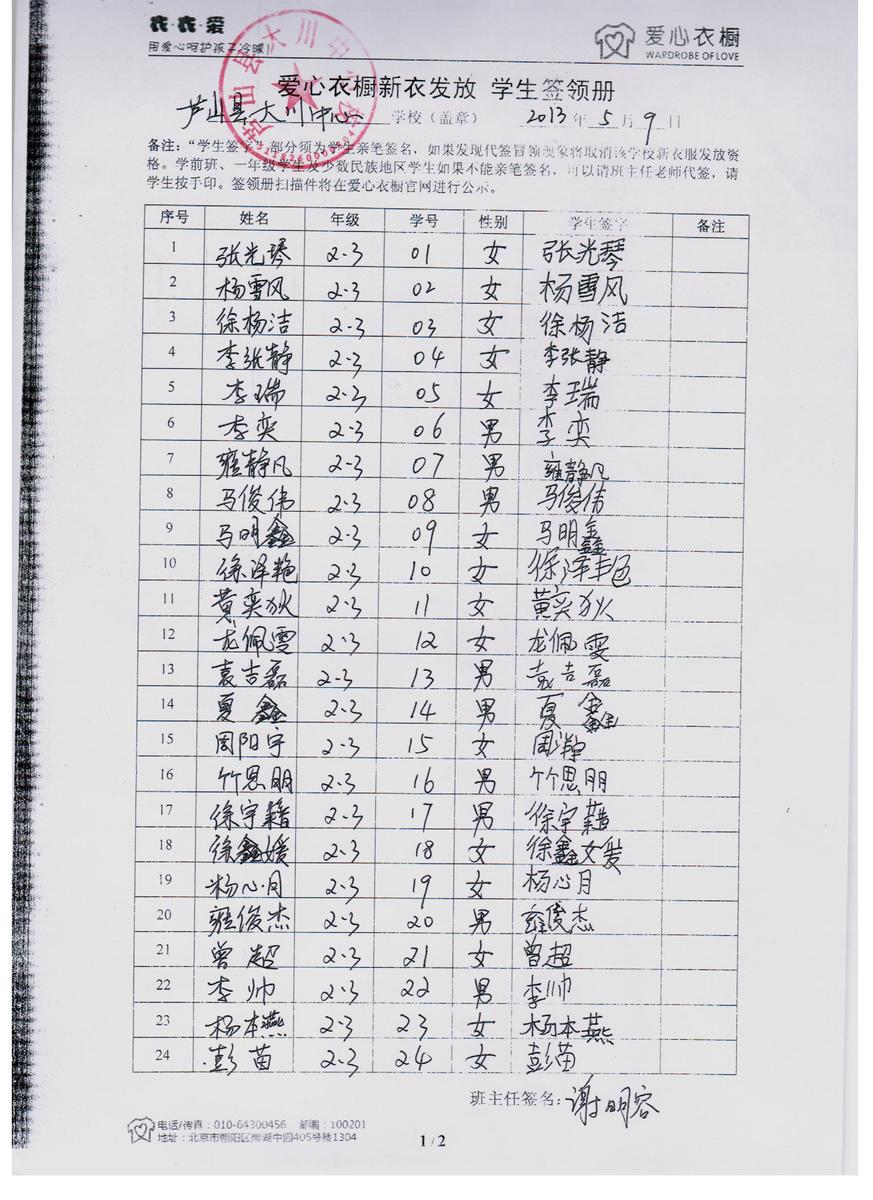 衣·衣·爱
用爱心呵护孩子冷暖!
爱心衣橱
WARDROBE OF LOVE
爱心衣橱新衣发放 学生签领册
芦山县大川中心 学校（盖章） 2013年5月9日
备注：“学生签字”部分须为学生亲笔签名，如果发现代签冒领现象将取消该学校新衣服发放资
格。学前班、一年级学生及少数民族地区学生如果不能亲笔签名，可以请班主任老师代签，请
学生按手印。签领册扫描件将在爱心衣橱官网进行公示。
序号 姓名 年级 学号 性别 学生签字 备注
1 张光琴 2-3 01 女 张光琴
2 杨雪风 2-3 02 女 杨雪风
3 徐杨洁 2-3 03 女 徐杨洁
4 李张静 2-3 04 女 李张静
5 李瑞 2-3 05 女 李瑞
6 李奕 2-3 06 男 李奕
7 雍静凡 2-3 07 男 雍静凡
8 马俊伟 2-3 08 男 马俊伟
9 马明鑫 2-3 09 女 马明鑫
10 徐泽艳 2-3 10 女 徐泽艳
11 黄奕狄 2-3 11 女 黄奕狄
12 龙佩雯 2-3 12 女 龙佩雯
13 袁吉磊 2-3 13 男 袁吉磊
14 夏鑫 2-3 14 男 夏鑫
15 周阳宇 2-3 15 女
16 竹思明 2-3 16 男 竹思明
17 徐宇籍 2-3 17 男 徐宇籍
18 徐鑫媛 2-3 18 女 徐鑫媛
19 杨心月 2-3 19 女 杨心月
20 雍俊杰 2-3 20 男 雍俊杰
21 曾超 2-3 21 女 曾超
22 李帅 2-3 22 男 李帅
23 杨本燕 2-3 23 女 杨本燕
24 彭苗 2-3 24 女 彭苗
班主任签名：谢明容
电话/传真：010-64300456 邮编：100201
地址：北京市朝阳区南湖中园405号楼1304
1 / 2